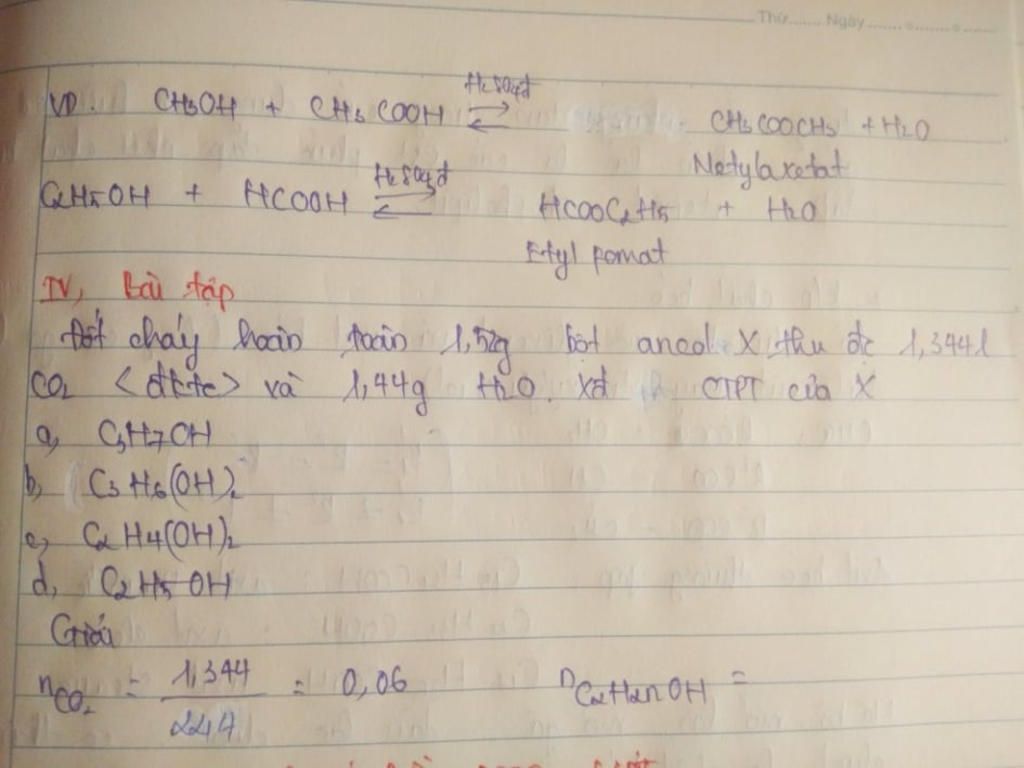 Thứ....... Ngày.......
VD. CH3OH + CH3COOH ⇌ CH3COOCH3 + H2O
H2SO4đ
Metylaxetat
C2H5OH + HCOOH ⇌ HCOOC2H5 + H2O
H2SO4đ
Etyl fomat
IV, Bài tập
Đốt cháy hoàn toàn 1,52g bột ancol X thu đc 1,344l
CO2 <đktc> và 1,44g H2O. Xđ CTPT của X
a, C3H7OH
b, C3H6(OH)2
c, C2H4(OH)2
d, C2H5OH
Giải
nCO2 = 1,344 / 22,4 = 0,06 nC2H2nOH =